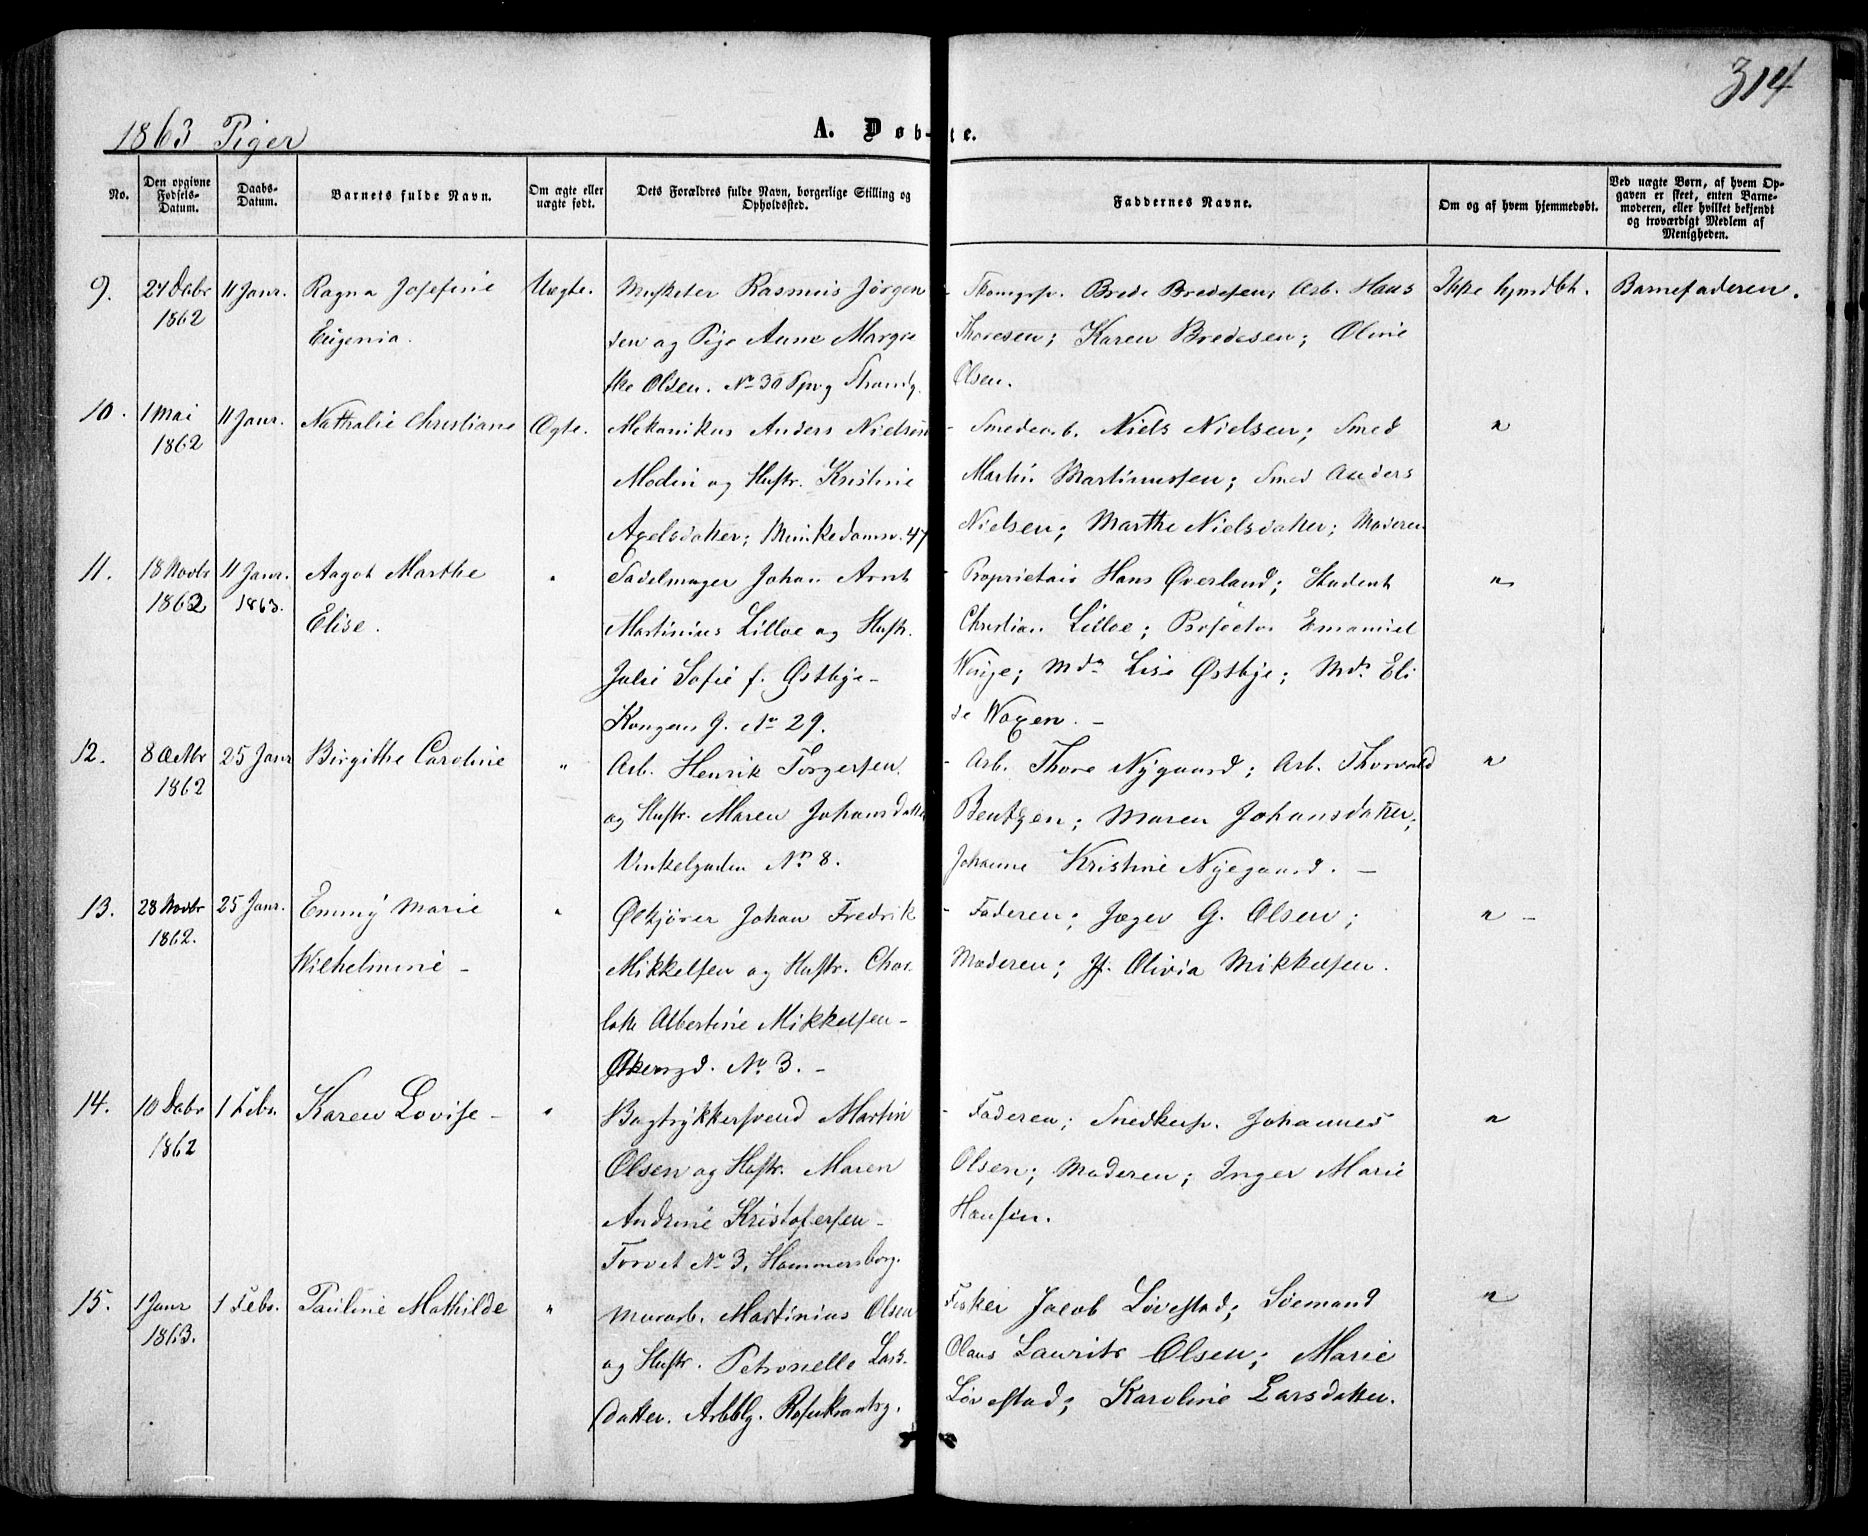 314
1863 Piger
A. Døb-te.
No.
Den opgivne Fødsels-Datum.
Daabs-Datum.
Barnets fulde Navn.
Om ægte eller uægte født.
Dets Forældres fulde Navn, borgerlige Stilling og Opholdssted.
Faddernes Navne.
Om og af hvem hjemmedøbt.
Ved uægte Børn, af hvem Opgaven er skeet, enten Barnemoderen, eller hvilket bekjendt og troværdigt Medlem af Menigheden.
9. 24 Decbr 11 Janr. Ragna Josefine Uægte. Musketer Rasmus Jörgen - Brede Bredesen; Arb. Hans Ikke hjmdbt. Barnefaderen.
1862 Eugenia. sen og Pige Anne Margre Thoresen; Karen Bredesen; Oline
the Olsen. No 30 Strandg. Olsen.
10. 1 Mai 11 Janr. Nathalie Christiane Ægte. Mekanikus Anders Nielsen - Smedearb. Niels Nielsen; Smed "
1862 Modin og Hustr. Kristine Martin Martinussen; Smed Anders
Axelsdatter; Munkedamsv. 47 Nielsen; Marthe Nielsdatter; Moderen
11. 18 Novbr 11 Janr. Aagot Marthe " Sadelmager Johan Arnt - Proprietair Hans Øverland; Student "
1862 1863. Elise. Martinius Lilloe og Hustr. Christian Lilloe; Prosector Emanuel
Julie Sofie f. Østbye - Winge; Mdm Lise Østbye; Mdm Eli
Kongens G. No 29. se Waxen. -
12. 8 Octbr 25 Janr Birgitte Caroline " Arb. Henrik Torgersen. - Arb. Thore Nygaard; Arb. Thorvald "
1862 og Hustr. Maren Johansdatter Bentzen; Maren Johansdatter;
Vinkelgaden No 8. Johanne Kristine Nyegaard. -
13. 28 Novbr 25 Janr. Emmy Marie " Ølkjører Johan Fredrik - Faderen; Jæger G. Olsen; " -
1862. Wilhelmine - Mikkelsen og Hustr. Char Moderen; Jf. Olivia Mikkelsen.
lotte Albertine Mikkelsen -
No. 3. -
14. 10 Decbr 1 Febr. Karen Lovise - " Bogtrykkersvend Martin - Faderen; Snedkersv. Johannes "
1862 Olsen og Hustr. Maren Olsen; Moderen; Inger Marie
Andrine Kristofersen - Hansen.
Torvet No 3. Hammersborg.
15. 1 Janr 1 Febr. Pauline Mathilde " Murarb. Martinius Olsen Fisker Jacob Lövestad; Söemand "
1863. og Hustr. Petronelle Lars- Olaus Laurits Olsen; Marie
datter. Arbblg. Rosenkrantzg. Lövestad; Karoline Larsdatter.